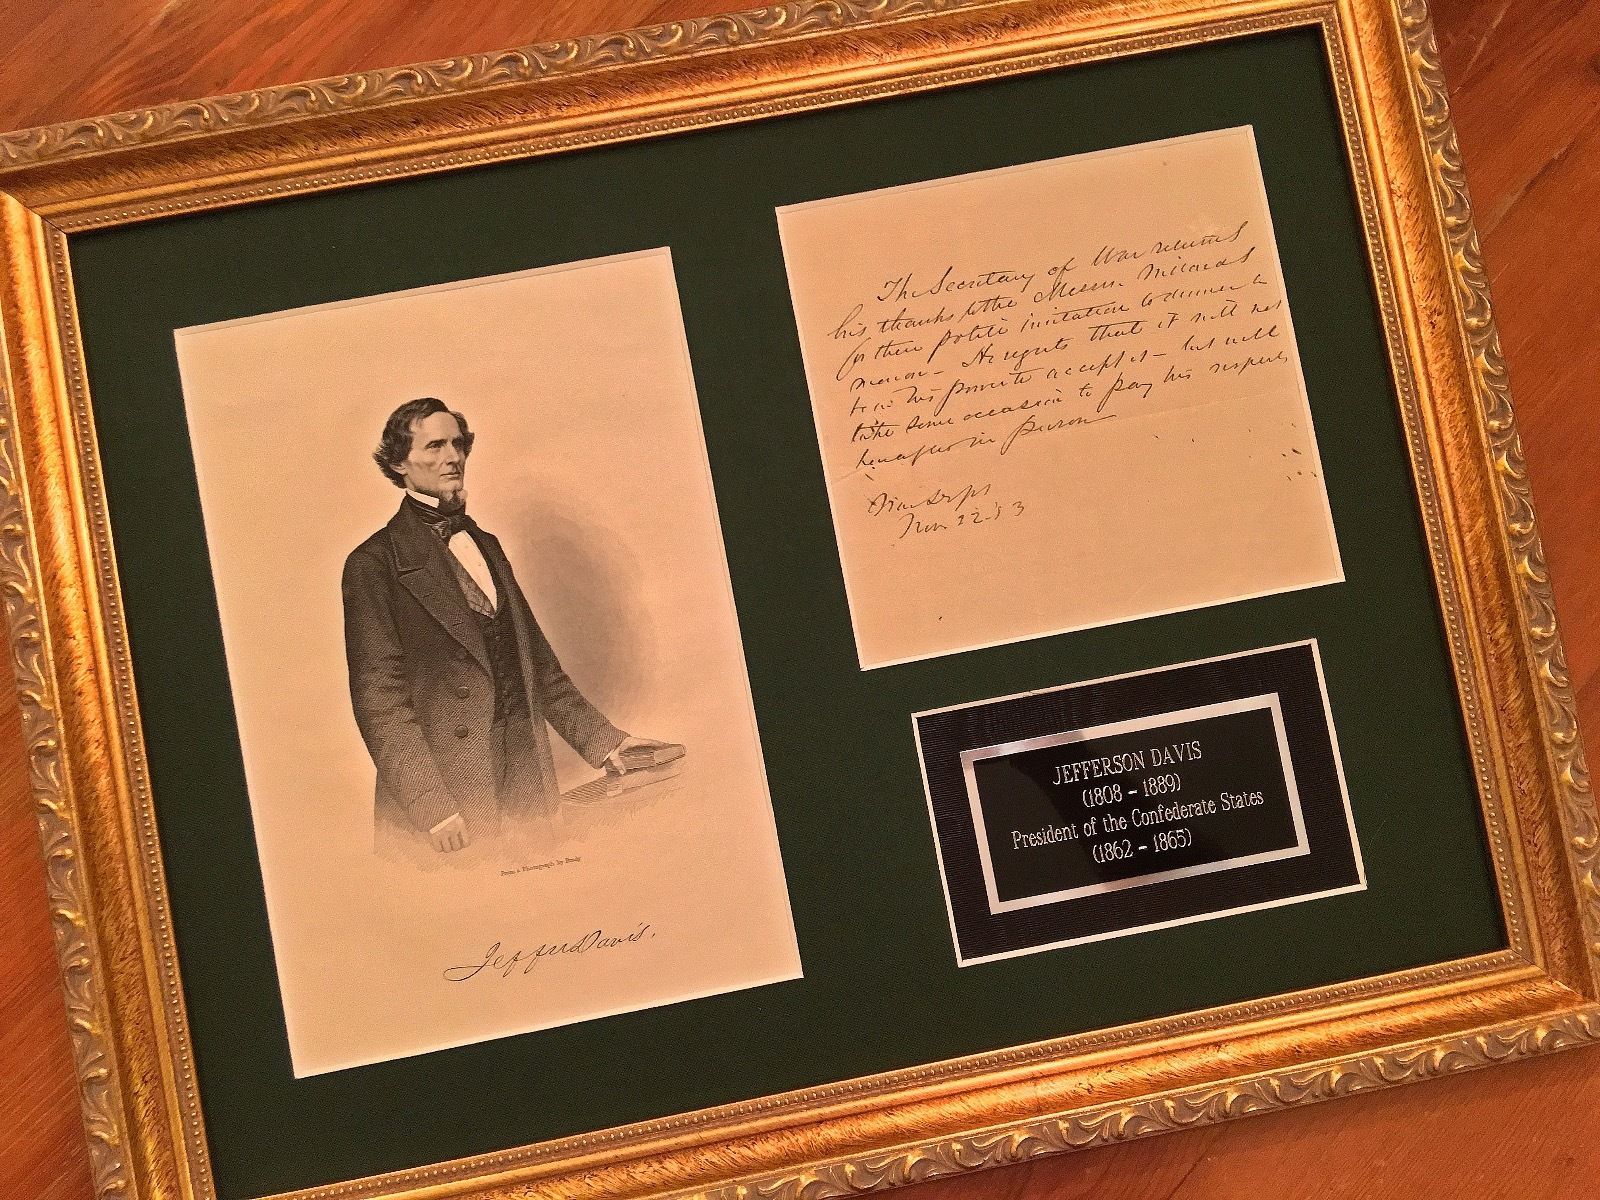 From a Photograph by Brady
Jeffn Davis.
The Secretary of War returns
his thanks to the Messrs.
for their polite invitation to dinner to
morrow - He regrets that it will not
be in his power to accept it - but will
take some occasion to pay his respects
hereafter in person
Nov. 22. 53
JEFFERSON DAVIS
(1808 - 1889)
President of the Confederate States
(1862 - 1865)